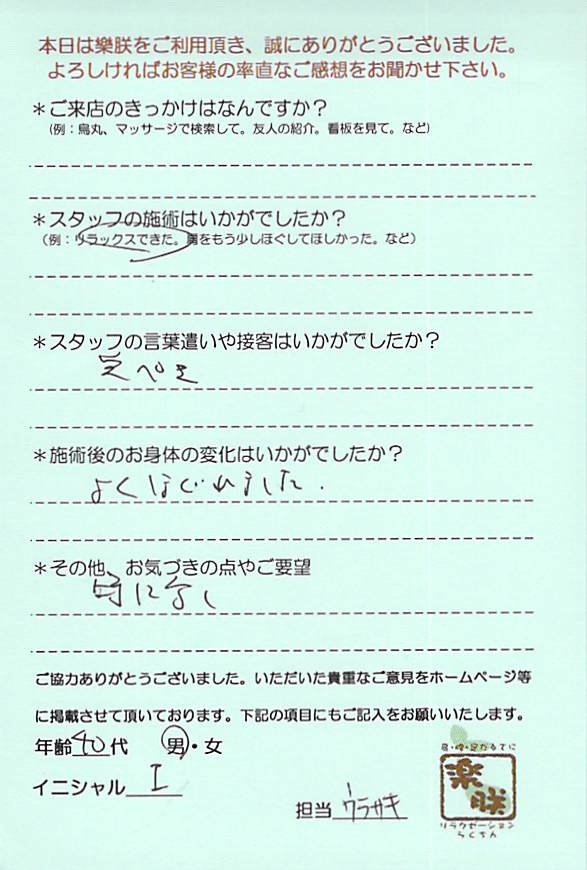 本日は樂朕をご利用頂き、誠にありがとうございました。
よろしければお客様の率直なご感想をお聞かせ下さい。
＊ご来店のきっかけはなんですか？
（例：烏丸、マッサージで検索して。友人の紹介。看板を見て。など）
＊スタッフの施術はいかがでしたか？
（例：リラックスできた。肩をもう少しほぐしてほしかった。など）
＊スタッフの言葉遣いや接客はいかがでしたか？
完ペキ
＊施術後のお身体の変化はいかがでしたか？
よくほぐれました.
＊その他、お気づきの点やご要望
特になし
ご協力ありがとうございました。いただいた貴重なご意見をホームページ等
に掲載させて頂いております。下記の項目にもご記入をお願いいたします。
年齢40代 男・女
イニシャル I
担当 ウラサキ
肩・腰・足かるてに
楽朕
リラクゼーション
らくちん